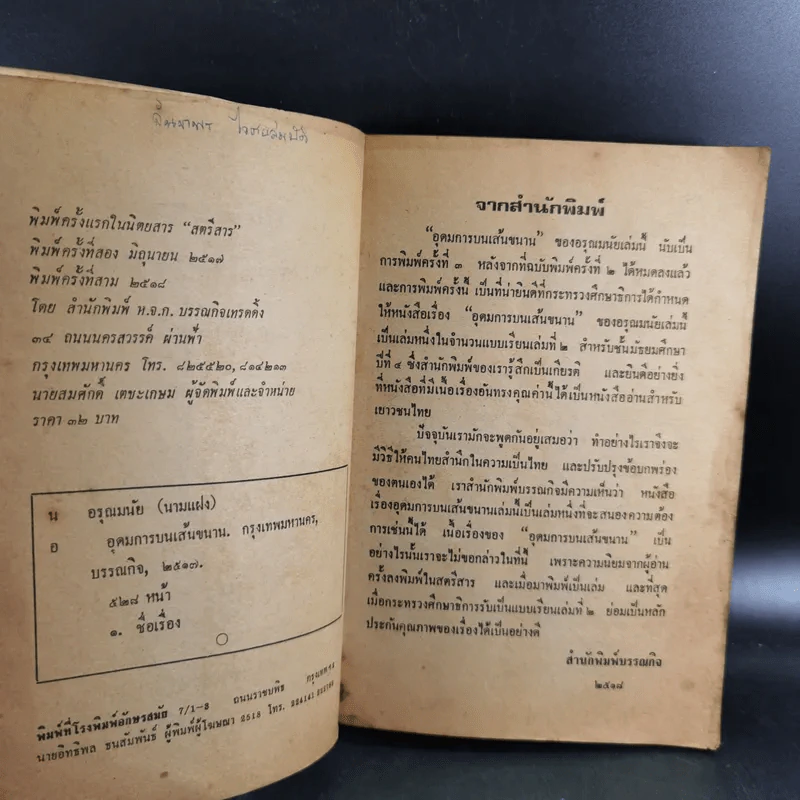 พิมพ์ครั้งแรกในนิตยสาร “สตรีสาร”
พิมพ์ครั้งที่สอง มิถุนายน ๒๕๑๗
พิมพ์ครั้งที่สาม ๒๕๑๘
โดย สำนักพิมพ์ ห.จ.ก. บรรณกิจเทรดดิ้ง
๓๔ ถนนนครสวรรค์ ผ่านฟ้า
กรุงเทพมหานคร โทร. ๘๒๕๕๒๐, ๘๑๔๒๑๓
นายสมศักดิ์ เตชะเกษม ผู้จัดพิมพ์และจำหน่าย
ราคา ๓๒ บาท
น อรุณมนัย (นามแฝง)
อ อุดมการบนเส้นขนาน. กรุงเทพมหานคร,
บรรณกิจ, ๒๕๑๗.
๕๒๘ หน้า
๑. ชื่อเรื่อง
พิมพ์ที่โรงพิมพ์อักษรสมัย 7/1-3 ถนนราชบพิธ กรุงเทพฯ
นายอิทธิพล ธนสัมพันธ์ ผู้พิมพ์ผู้โฆษณา 2518 โทร. 224141
จากสำนักพิมพ์
“อุดมการบนเส้นขนาน” ของอรุณมนัยเล่มนี้ นับเป็น
การพิมพ์ครั้งที่ ๓ หลังจากที่ฉบับพิมพ์ครั้งที่ ๒ ได้หมดลงแล้ว
และการพิมพ์ครั้งนี้ เป็นที่น่ายินดีที่กระทรวงศึกษาธิการได้กำหนด
ให้หนังสือเรื่อง “อุดมการบนเส้นขนาน” ของอรุณมนัยเล่มนี้
เป็นเล่มหนึ่งในจำนวนแบบเรียนเล่มที่ ๒ สำหรับชั้นมัธยมศึกษา
ปีที่ ๔ ซึ่งสำนักพิมพ์ของเรารู้สึกเป็นเกียรติ และยินดีอย่างยิ่ง
ที่หนังสือที่มีเนื้อเรื่องอันทรงคุณค่านี้ได้เป็นหนังสืออ่านสำหรับ
เยาวชนไทย
ปัจจุบันเรามักจะพูดกันอยู่เสมอว่า ทำอย่างไรเราจึงจะ
มีวิธีให้คนไทยสำนึกในความเป็นไทย และปรับปรุงข้อบกพร่อง
ของตนเองได้ เราสำนักพิมพ์บรรณกิจมีความเห็นว่า หนังสือ
เรื่องอุดมการบนเส้นขนานเล่มนี้เป็นเล่มหนึ่งที่จะสนองความต้อง
การเช่นนี้ได้ เนื้อเรื่องของ “อุดมการบนเส้นขนาน” เป็น
อย่างไรนั้นเราจะไม่ขอกล่าวในที่นี้ เพราะความนิยมจากผู้อ่าน
ครั้งลงพิมพ์ในสตรีสาร และเมื่อมาพิมพ์เป็นเล่ม และที่สุด
เมื่อกระทรวงศึกษาธิการรับเป็นแบบเรียนเล่มที่ ๒ ย่อมเป็นหลัก
ประกันคุณภาพของเรื่องได้เป็นอย่างดี
สำนักพิมพ์บรรณกิจ
๒๕๑๘